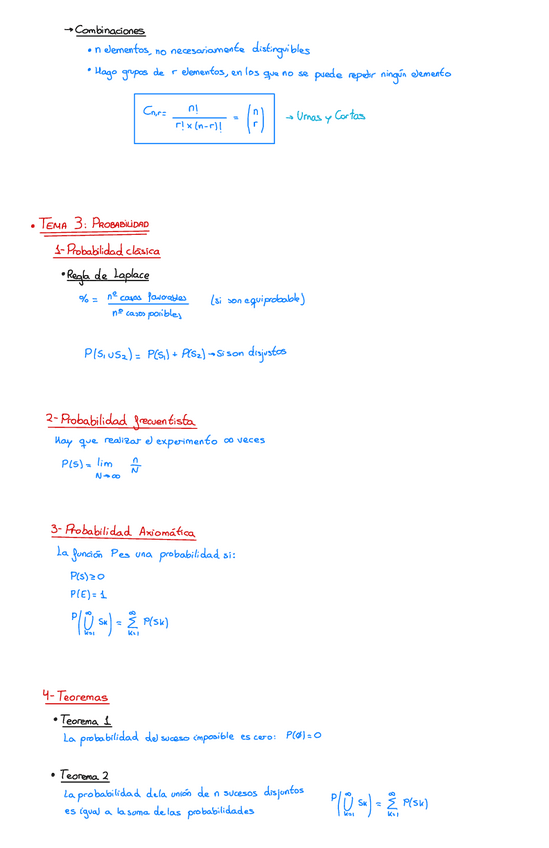 → Combinaciones
• n elementos, no necesariamente distinguibles
• Hago grupos de r elementos, en los que no se puede repetir ningún elemento
Cn,r = n! / r! x (n-r)! = (n r) → Urnas y Cartas
• TEMA 3: PROBABILIDAD
1- Probabilidad clásica
• Regla de Laplace
% = nº casos favorables / nº casos posibles (si son equiprobable)
P(S₁ ∪ S₂) = P(S₁) + P(S₂) → Si son disjustos
2- Probabilidad frecuentista
Hay que realizar el experimento ∞ veces
P(S) = lim N→∞ n/N
3- Probabilidad Axiomática
La función P es una probabilidad si:
P(S) ≥ 0
P(E) = 1
P(⋃ k=1 ∞ Sk) = ∑ k=1 ∞ P(Sk)
4- Teoremas
• Teorema 1
La probabilidad del suceso imposible es cero: P(ø) = 0
• Teorema 2
La probabilidad de la unión de n sucesos disjuntos
es igual a la soma de las probabilidades
P(⋃ k=1 ∞ Sk) = ∑ k=1 ∞ P(Sk)